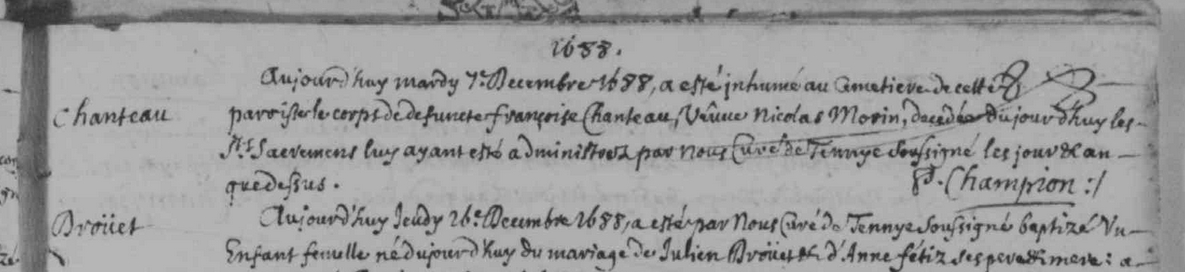 1688.
Aujourd'huy mardy 7.e Decembre 1688, a esté inhumé au Cemetiere de cette
Chanteau
paroisse le corps de defuncte françoise Chanteau, Vêuve Nicolas Morin, decedée du jourd'huy les
Sts. Sacremens luy ayant esté administrez par Nous Curé de Tennye soussigné les jour & an
que dessus.
Champion :/
Broüet
Aujourd'huy Jeudy 16.e Decembre 1688, a esté par Nous Curé de Tennye soussigné baptizé Vn
Enfant femelle né du jourd'huy du mariage de Julien Broüet & d'Anne fétiz ses pere & mere : a